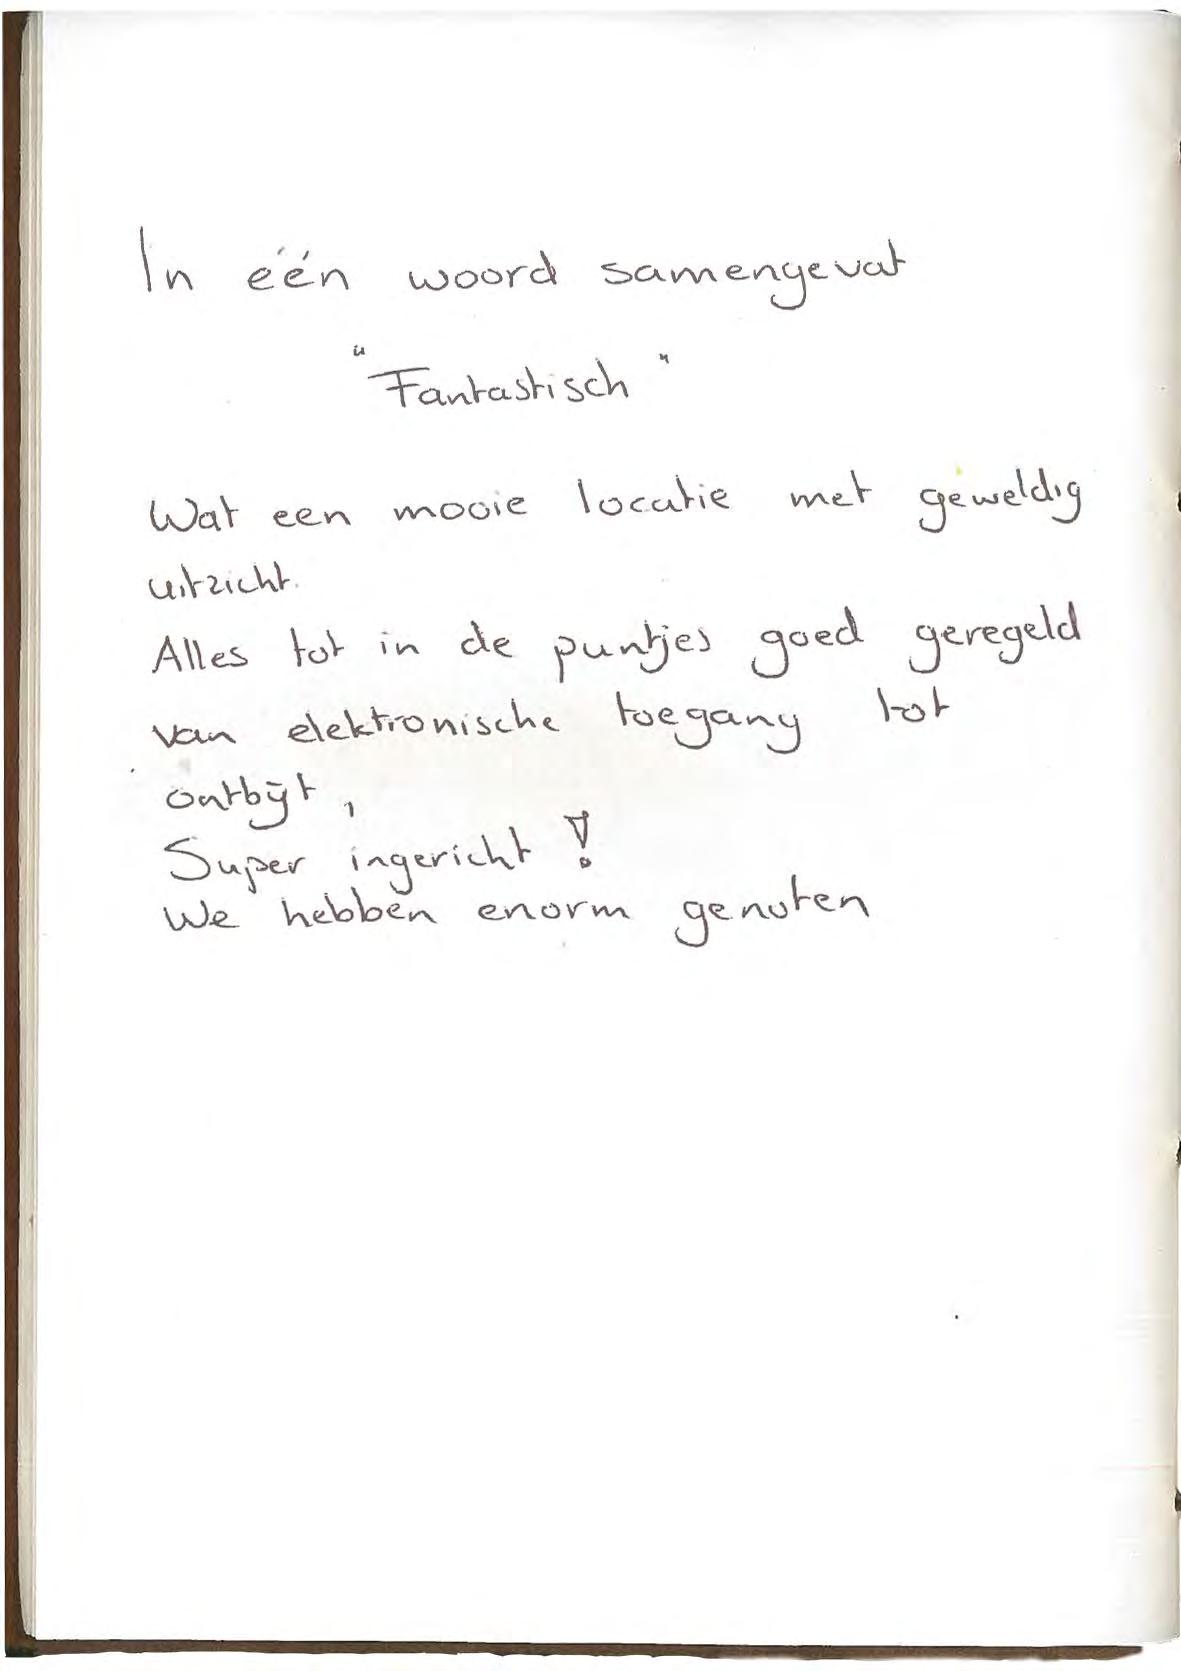 In één woord samengevat
"Fantastisch"
Wat een mooie locatie met geweldig
uitzicht.
Alles tot in de puntjes goed geregeld
van elektronische toegang tot
ontbijt,
Super ingericht !
We hebben enorm genoten